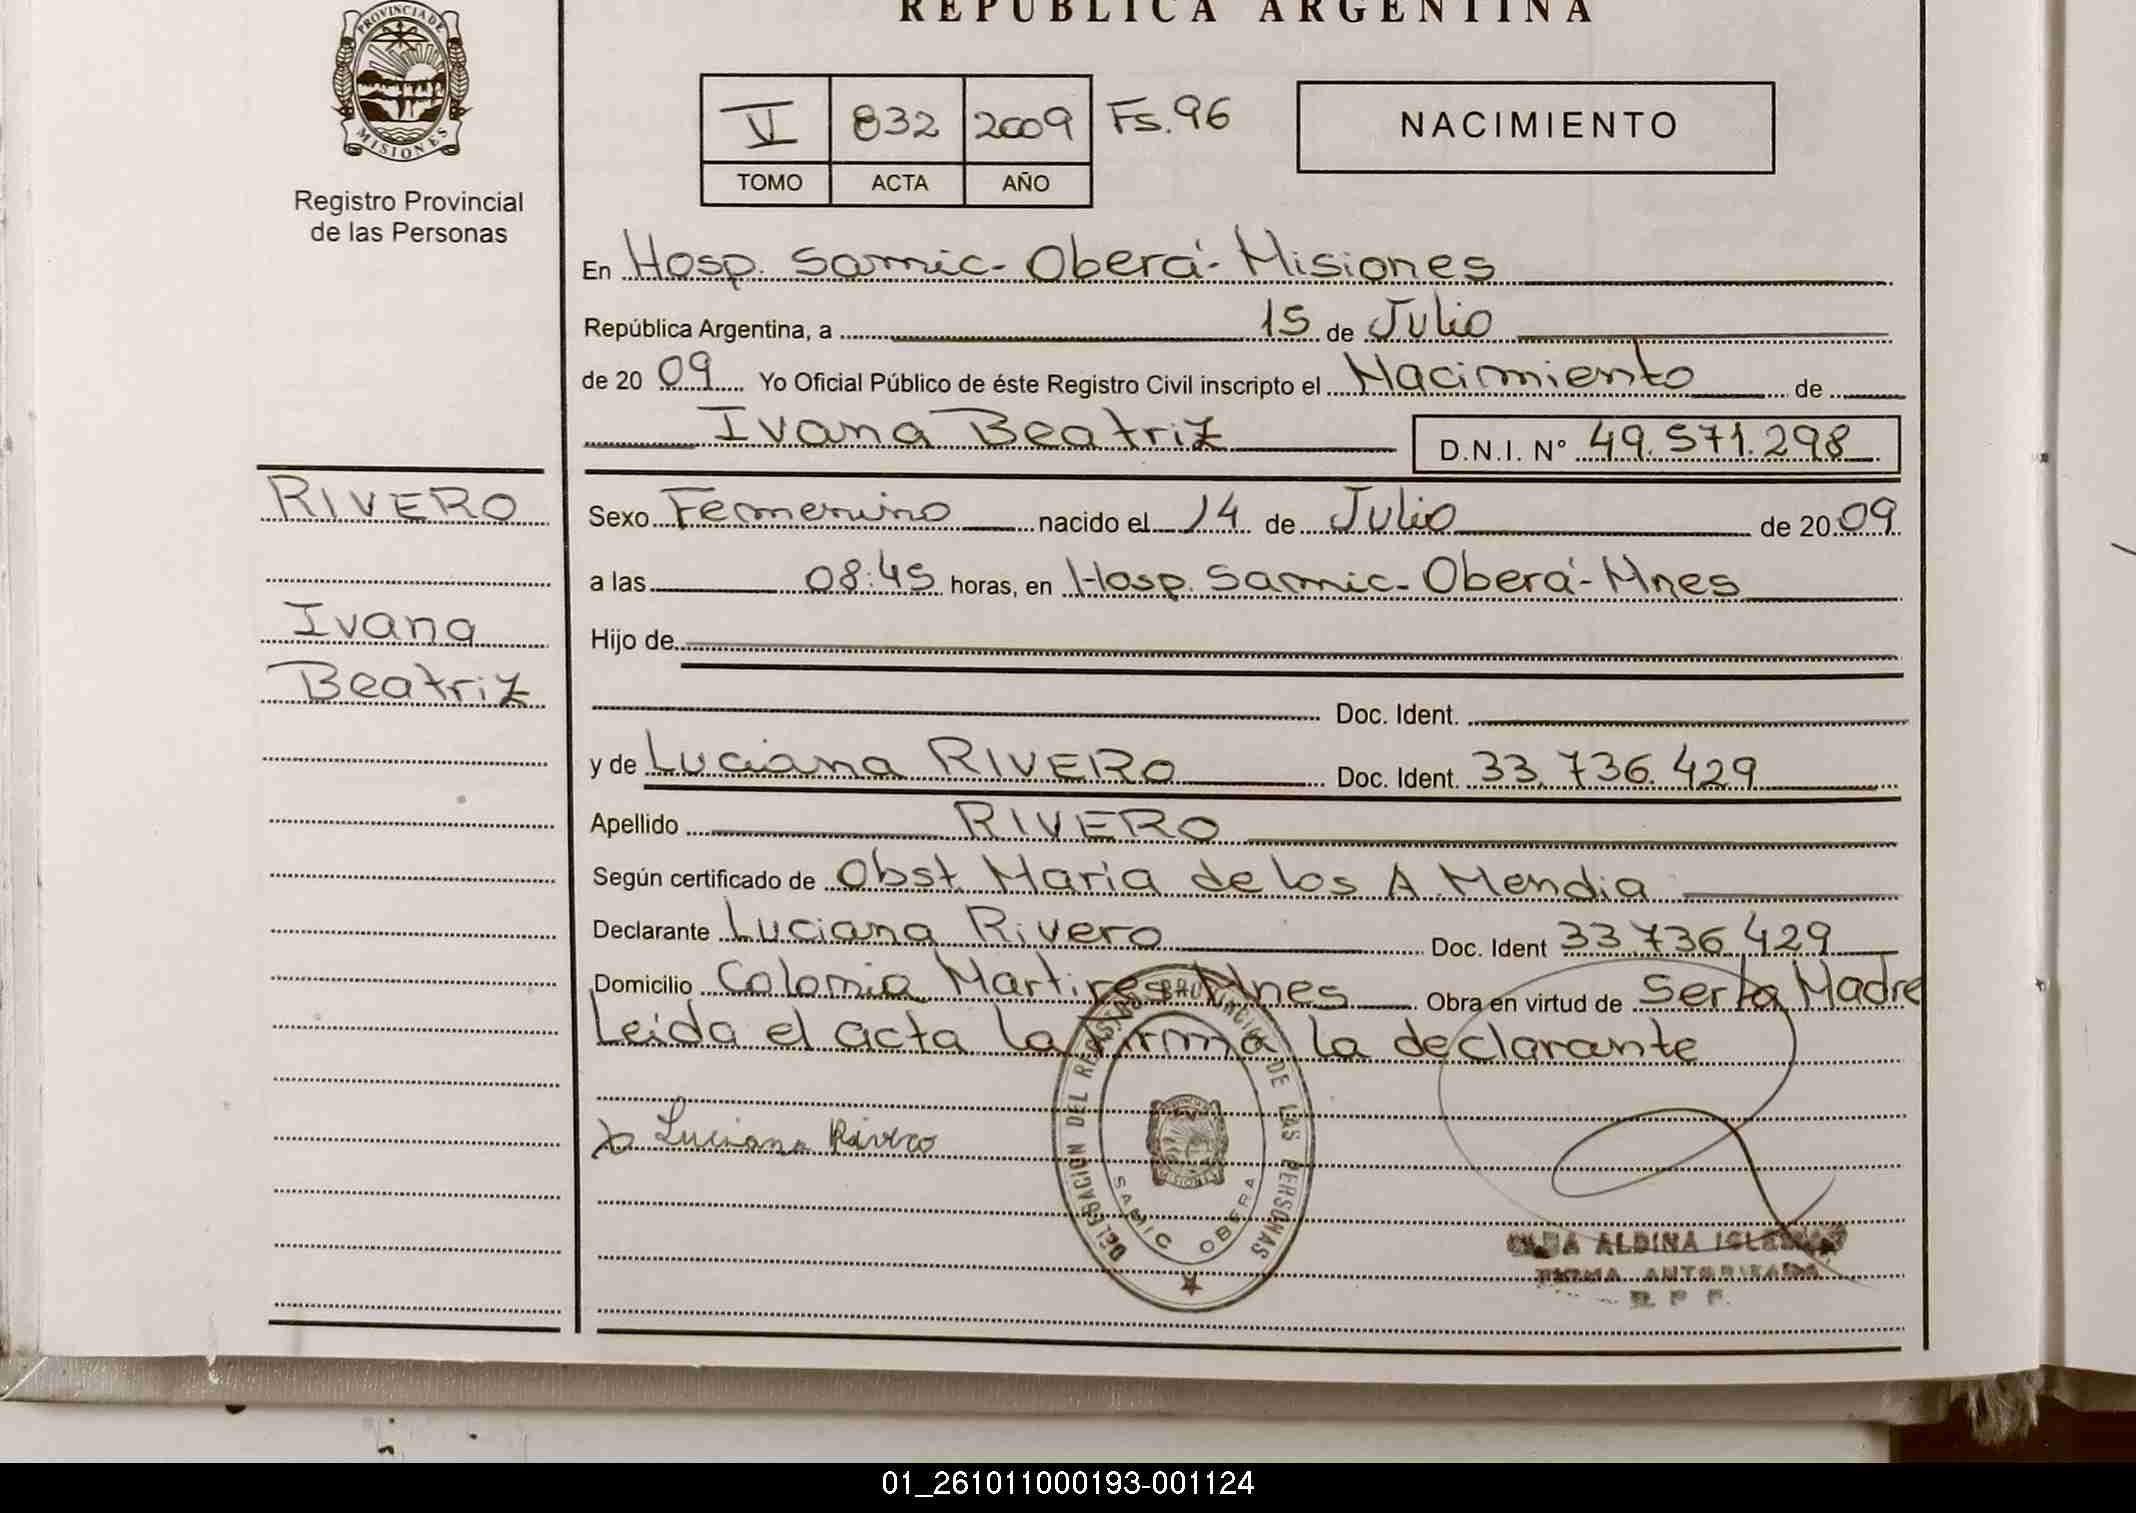 REPUBLICA ARGENTINA
PROVINCIA DE
MISIONES
Registro Provincial
de las Personas
V 832 2009 Fs. 96
TOMO ACTA AÑO
NACIMIENTO
En Hosp. Samic - Oberá - Misiones
República Argentina, a 15 de Julio
de 20 09 Yo Oficial Público de éste Registro Civil inscripto el Nacimiento de
Ivana Beatriz D.N.I. N° 49.571.298
RIVERO
Ivana
Beatriz
Sexo Femenino nacido el 14 de Julio de 20 09
a las 08:45 horas, en Hosp. Samic - Oberá - Mnes
Hijo de
Doc. Ident.
y de Luciana RIVERO Doc. Ident. 33.736.429
Apellido RIVERO
Según certificado de Obst. Maria de los A Mendia
Declarante Luciana Rivero Doc. Ident 33.736.429
Domicilio Colonia Martires Mnes Obra en virtud de Ser la Madre
Leida el acta la firma la declarante
Luciana Rivero
DELEGACION DEL REGISTRO PROVINCIAL DE LAS PERSONAS
MISIONES
SAMIC OBERA
ALDINA
FIRMA AUTORIZADA
01_261011000193-001124